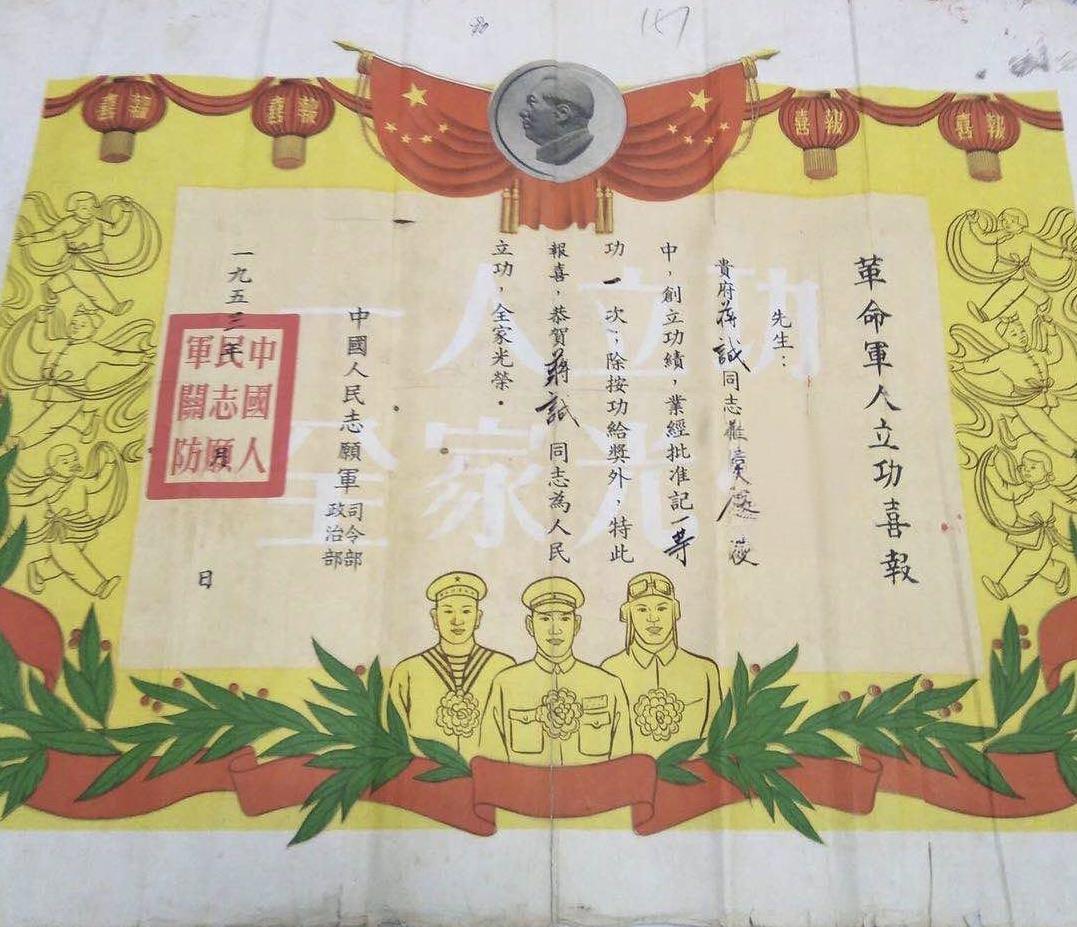 喜報
喜報
喜報
喜報
革命軍人立功喜報
先生：
貴府蔣誠同志
中，創立功績，業經批准記一等
功一次；除按功給獎外，特此
報喜，恭賀蔣誠同志為人民
立功，全家光榮。
中國人民志願軍
司令部
政治部
一九五三年 月 日
中國人
民志願
軍關防
一人立功
全家光